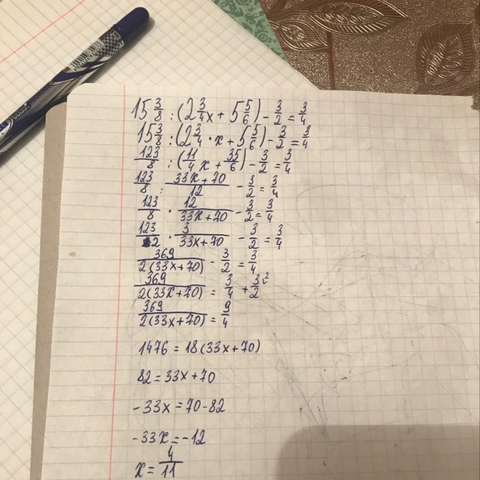 15 3/8 : (2 3/4 x + 5 5/6) - 3/2 = 3/4
15 3/8 : (2 3/4 · x + 5 5/6) - 3/2 = 3/4
123/8 : (11/4 x + 35/6) - 3/2 = 3/4
123/8 : (33x + 70)/12 - 3/2 = 3/4
123/8 · 12/(33x + 70) - 3/2 = 3/4
123/2 · 3/(33x + 70) - 3/2 = 3/4
369/(2(33x + 70)) - 3/2 = 3/4
369/(2(33x + 70)) = 3/4 + 3/2 ²
369/(2(33x + 70)) = 9/4
1476 = 18(33x + 70)
82 = 33x + 70
-33x = 70 - 82
-33x = -12
x = 4/11